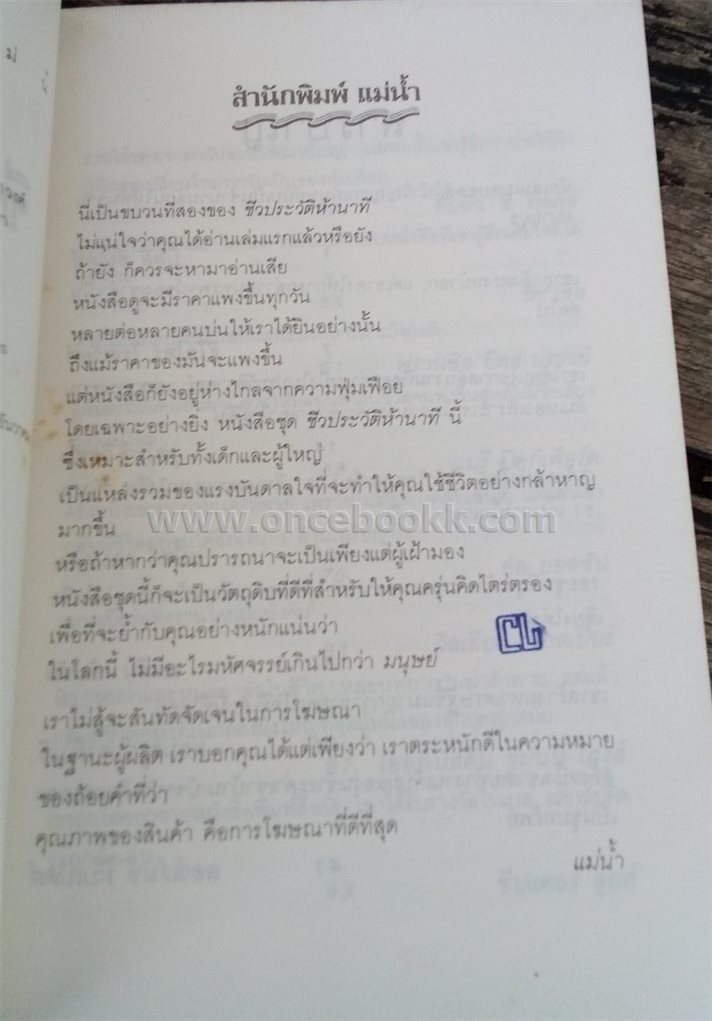 สำนักพิมพ์ แม่น้ำ
นี่เป็นขบวนที่สองของ ชีวประวัติห้านาที
ไม่แน่ใจว่าคุณได้อ่านเล่มแรกแล้วหรือยัง
ถ้ายัง ก็ควรจะหามาอ่านเสีย
หนังสือดูจะมีราคาแพงขึ้นทุกวัน
หลายต่อหลายคนบ่นให้เราได้ยินอย่างนั้น
ถึงแม้ราคาของมันจะแพงขึ้น
แต่หนังสือก็ยังอยู่ห่างไกลจากความฟุ่มเฟือย
โดยเฉพาะอย่างยิ่ง หนังสือชุด ชีวประวัติห้านาที นี้
ซึ่งเหมาะสำหรับทั้งเด็กและผู้ใหญ่
เป็นแหล่งรวมของแรงบันดาลใจที่จะทำให้คุณใช้ชีวิตอย่างกล้าหาญ
มากขึ้น
www.oncebookk.com
หรือถ้าหากว่าคุณปรารถนาจะเป็นเพียงแต่ผู้เฝ้ามอง
หนังสือชุดนี้ก็จะเป็นวัตถุดิบที่ดีที่สำหรับให้คุณครุ่นคิดไตร่ตรอง
เพื่อที่จะย้ำกับคุณอย่างหนักแน่นว่า
ในโลกนี้ ไม่มีอะไรมหัศจรรย์เกินไปกว่า มนุษย์
เราไม่สู้จะสันทัดจัดเจนในการโฆษณา
ในฐานะผู้ผลิต เราบอกคุณได้แต่เพียงว่า เราตระหนักดีในความหมาย
ของถ้อยคำที่ว่า
คุณภาพของสินค้า คือการโฆษณาที่ดีที่สุด
แม่น้ำ